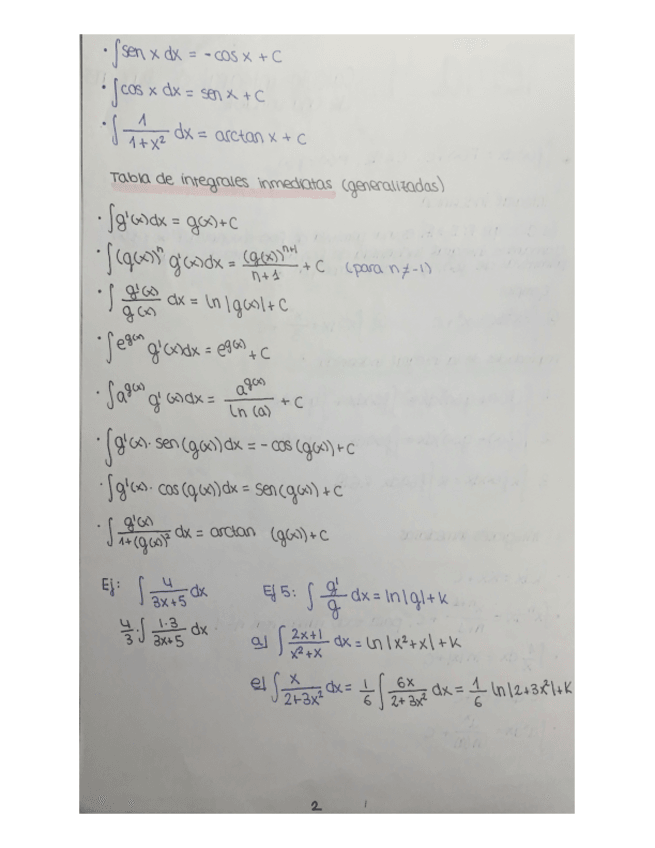 • ∫sen x dx = - cos x + C
• ∫cos x dx = sen x + C
• ∫ 1/(1+x²) dx = arctan x + C
Tabla de integrales inmediatas (generalizadas)
• ∫g'(x)dx = g(x)+C
• ∫(g(x))ⁿ g'(x)dx = (g(x))ⁿ⁺¹/(n+1) + C (para n≠-1)
• ∫ g'(x)/g(x) dx = ln |g(x)|+C
• ∫e^g(x) g'(x)dx = e^g(x) + C
• ∫a^g(x) g'(x)dx = a^g(x)/ln (a) + C
• ∫g'(x)· sen(g(x))dx = - cos (g(x))+C
• ∫g'(x)· cos(g(x))dx = sen(g(x)) + C
• ∫ g'(x)/(1+(g(x))²) dx = arctan (g(x))+C
Ej: ∫ 4/(3x+5) dx
4/3 · ∫ 1·3/(3x+5) dx
Ej 5: ∫ g'/g dx = ln|g|+k
a) ∫ (2x+1)/(x²+x) dx = ln |x²+x| + k
e) ∫ x/(2+3x²) dx = 1/6 ∫ 6x/(2+3x²) dx = 1/6 ln|2+3x²|+k
2